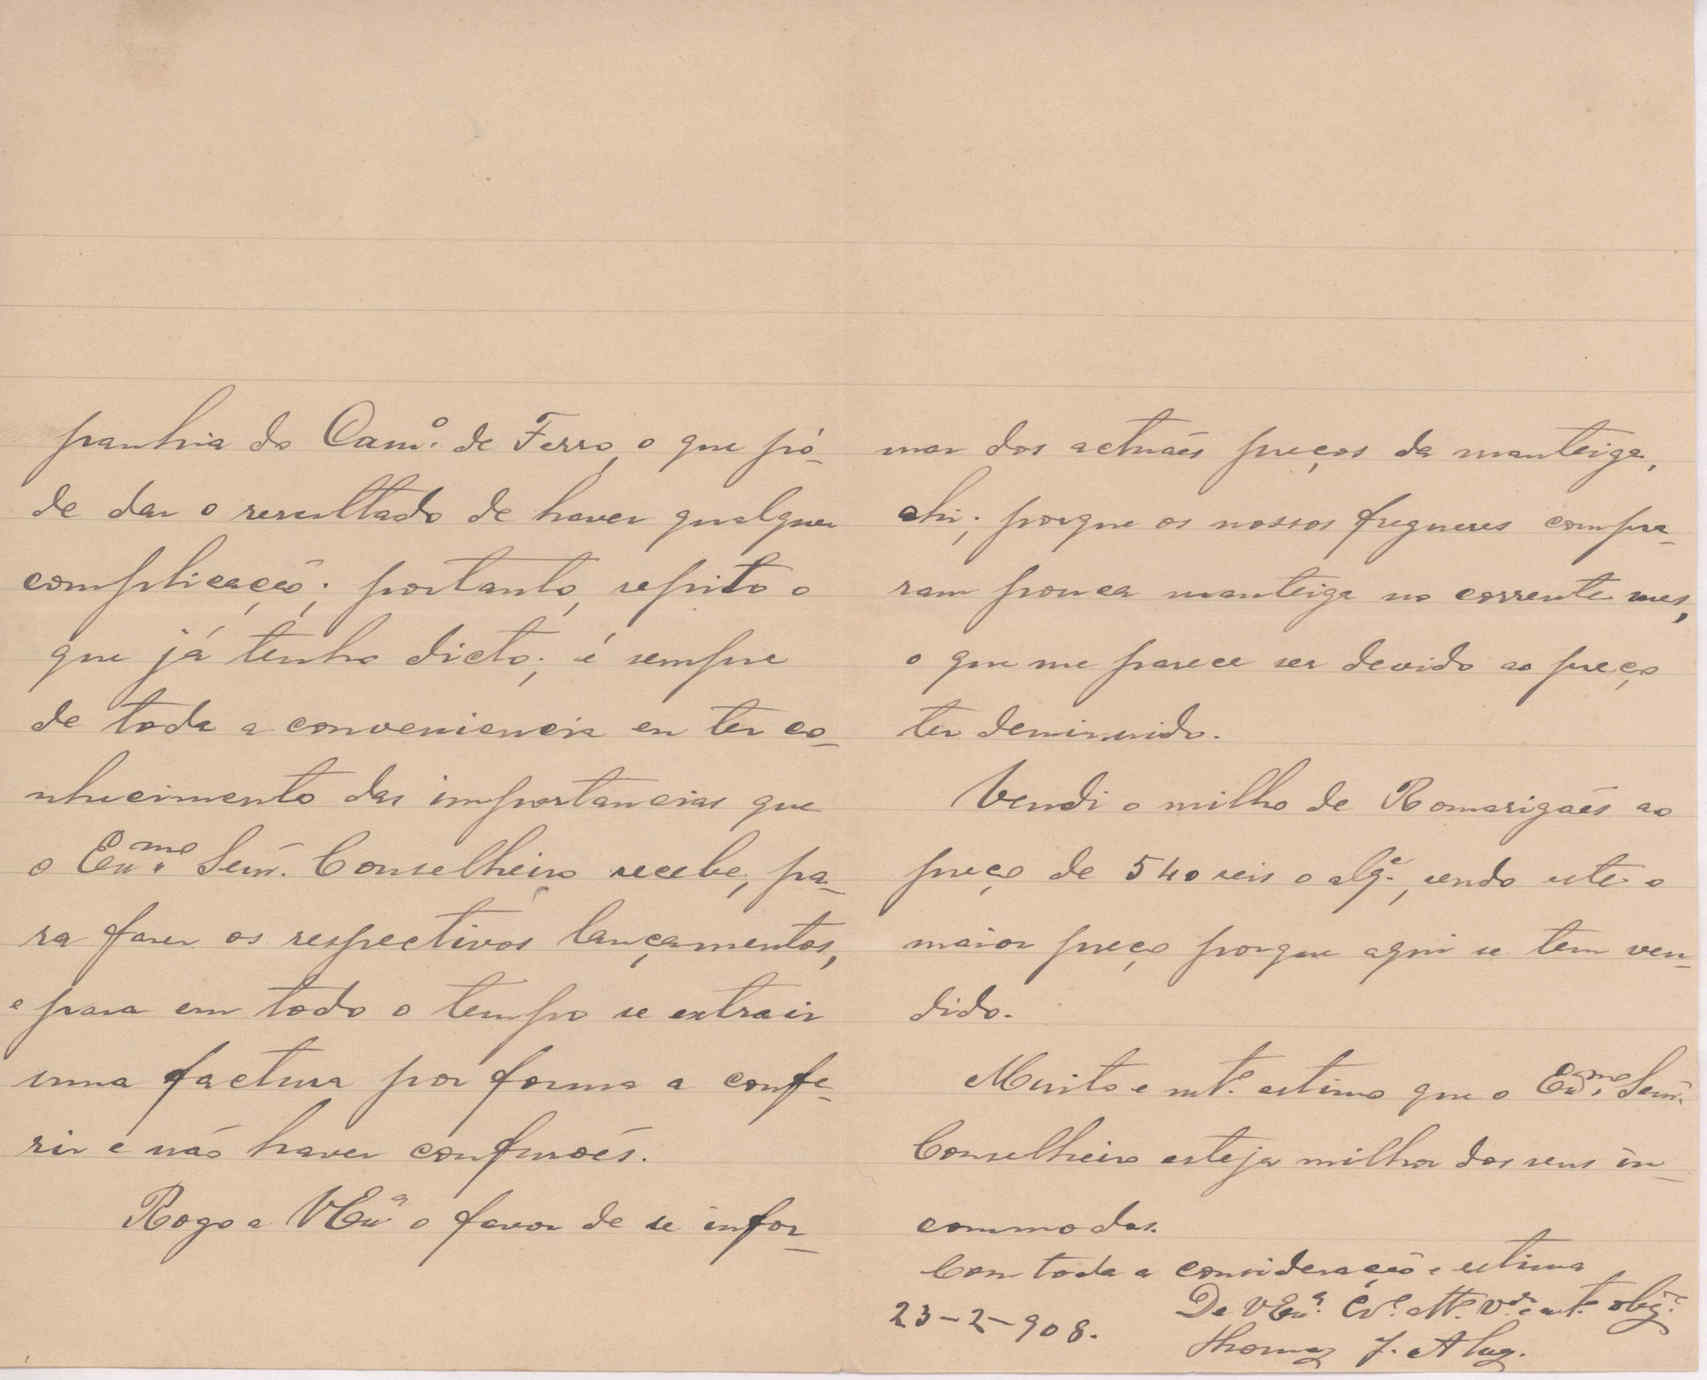 panhia do Cam.º de Ferro, o que pó-
de dar o resultado de haver qualquer
complicação; portanto, repito o
que já tenho dicto; é sempre
de toda a conveniencia eu ter co-
nhecimento das importancias que
o Ex.mo Senr. Conselheiro recebe, pa-
ra fazer os respectivos lançamentos,
e para em todo o tempo se extrair
uma factura por forma a confe-
rir e não haver confusoés.
Rogo a VExª o favor de se infor-
mar dos actuáes preços da manteiga,
ahi; porque os nossos freguezes compra-
ram pouca manteiga no corrente mes,
o que me parece ser devido ao preço
ter deminuido.
Vendi o milho de Romarigaés ao
preço de 540 reis o alq.e, sendo este o
maior preço porque aqui se tem ven-
dido.
Muito e mt.º estimo que o Ex.mo Senr.
Conselheiro esteja milhor dos seus in-
commodos.
Com toda a consideração e estima
De VEx.ª Cr.º Att.º V.dor e mt.º obg.º
23-2-908.
Thomaz J. Alug.